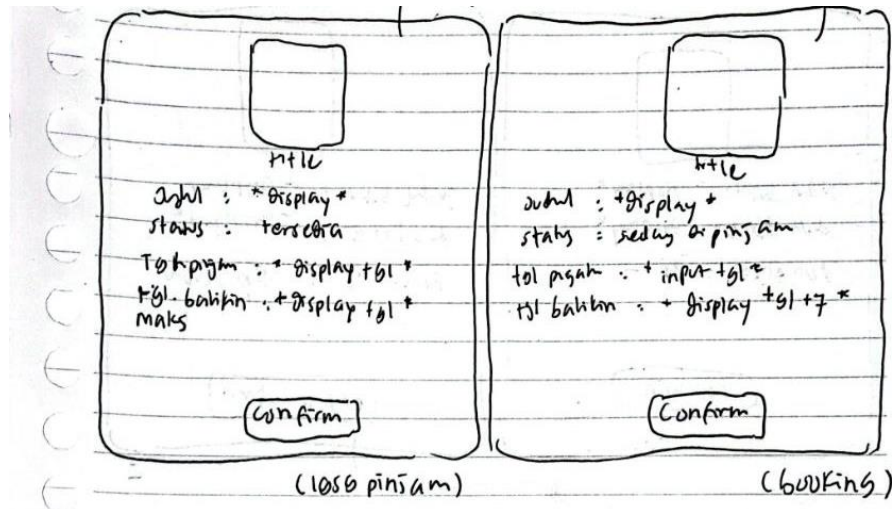 title
Judul : * display *
status : tersedia
Tgl pinjam : * display tgl *
tgl. balikin : * display tgl *
maks
confirm
(1050 pinjam)
title
Judul : * display *
status : sedang dipinjam
tgl pinjam : * input tgl *
tgl balikin : * display tgl +7 *
confirm
(booking)